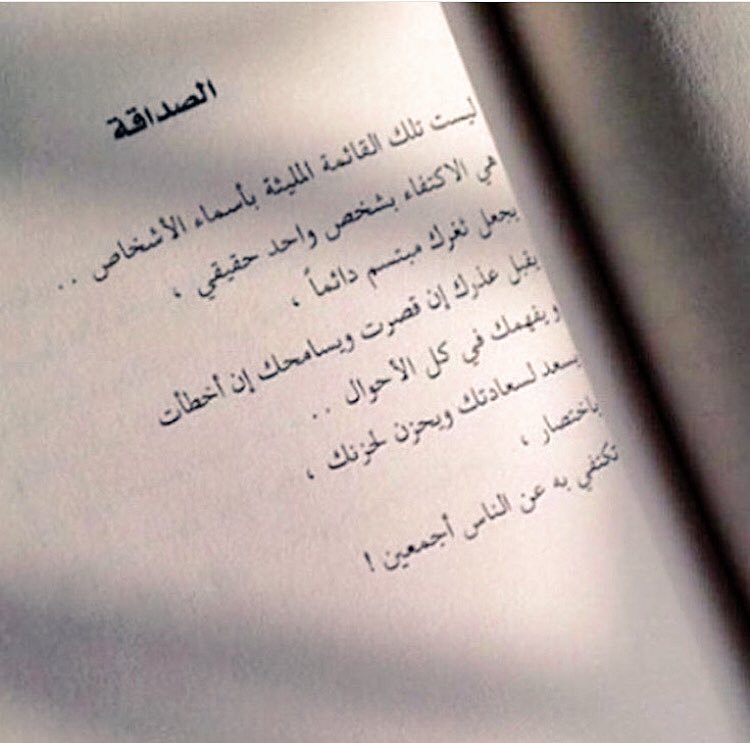 الصداقة
ليست تلك القائمة المليئة بأسماء الأشخاص ..
هي الاكتفاء بشخص واحد حقيقي ،
يجعل ثغرك مبتسم دائماً ،
يقبل عذرك إن قصرت ويسامحك إن أخطأت
ويفهمك في كل الأحوال ..
يسعد لسعادتك ويحزن لحزنك ،
باختصار ،
تكتفي به عن الناس أجمعين !